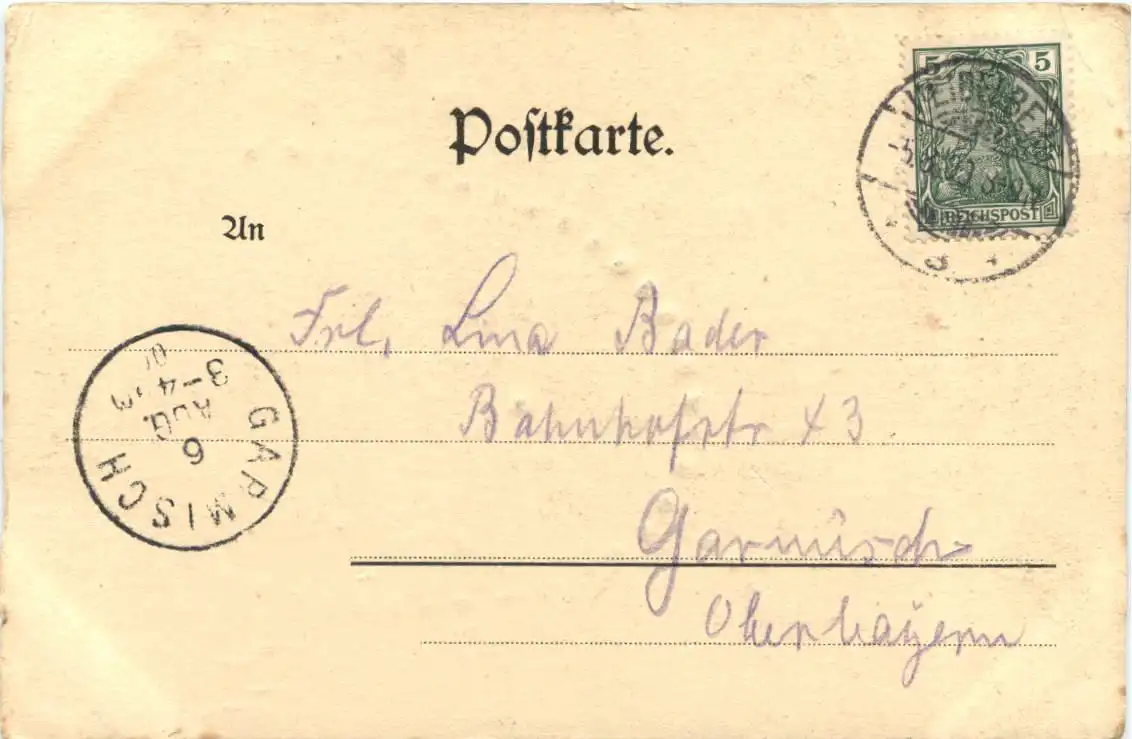 5 5
REICHSPOST
Postkarte.
An
Frl. Lina Bader
Bahnhofstr 43
Garmisch
Oberbayern
GARMISCH
6
AUG.
3-4